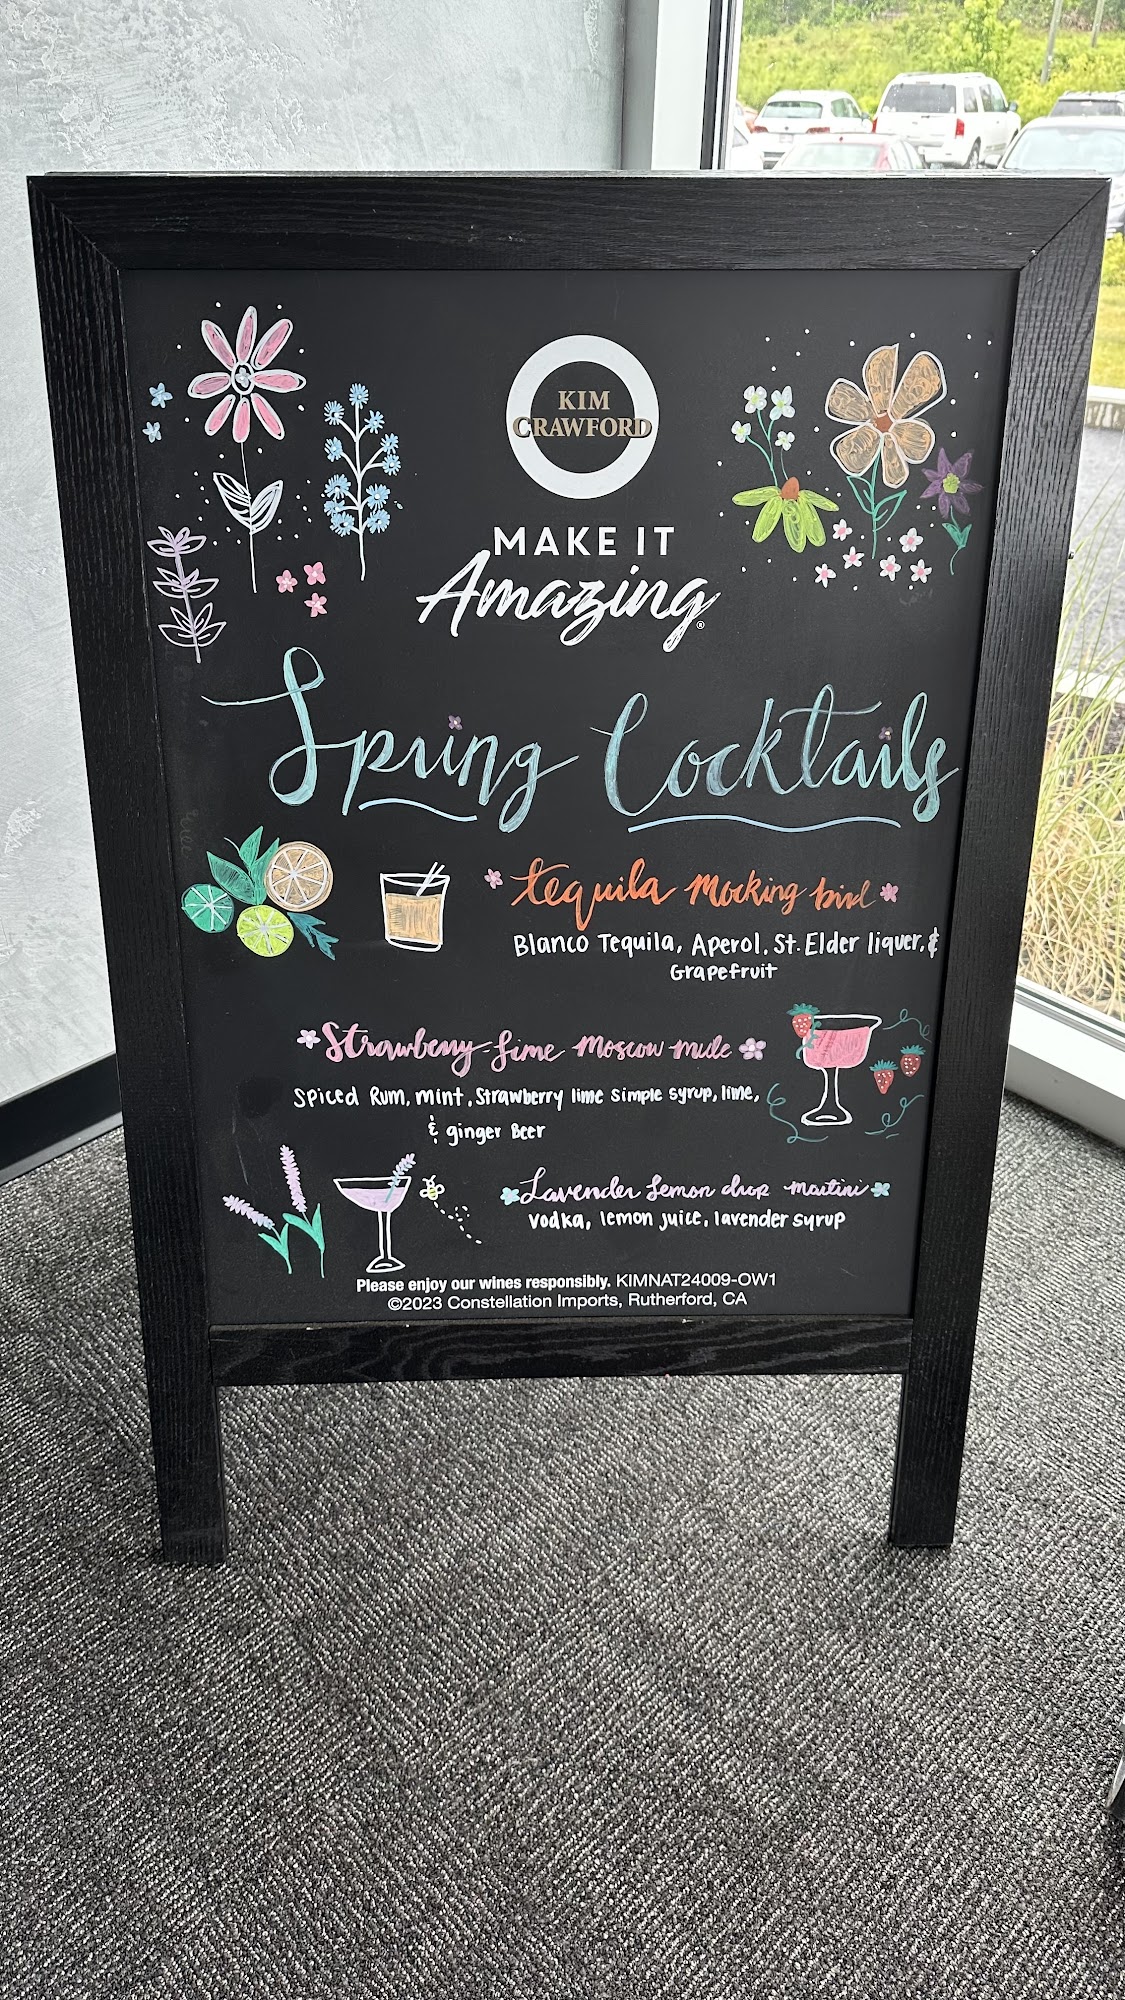 KIM
CRAWFORD
MAKE IT
Amazing®
Spring Cocktails
tequila Mocking bird
Blanco Tequila, Aperol, St. Elder liquer, &
Grapefruit
Strawberry-Lime Moscow mule
Spiced Rum, mint, Strawberry lime simple syrup, lime,
& ginger Beer
Lavender Lemon drop martini
Vodka, lemon juice, lavender syrup
Please enjoy our wines responsibly. KIMNAT24009-OW1
©2023 Constellation Imports, Rutherford, CA